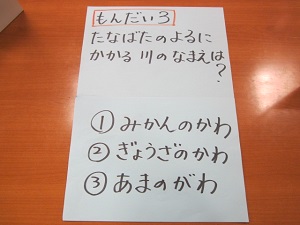 もんだい3
たなばたのよるに
かかる川のなまえは
?
①みかんのかわ
②ぎょうざのかわ
③あまのがわ